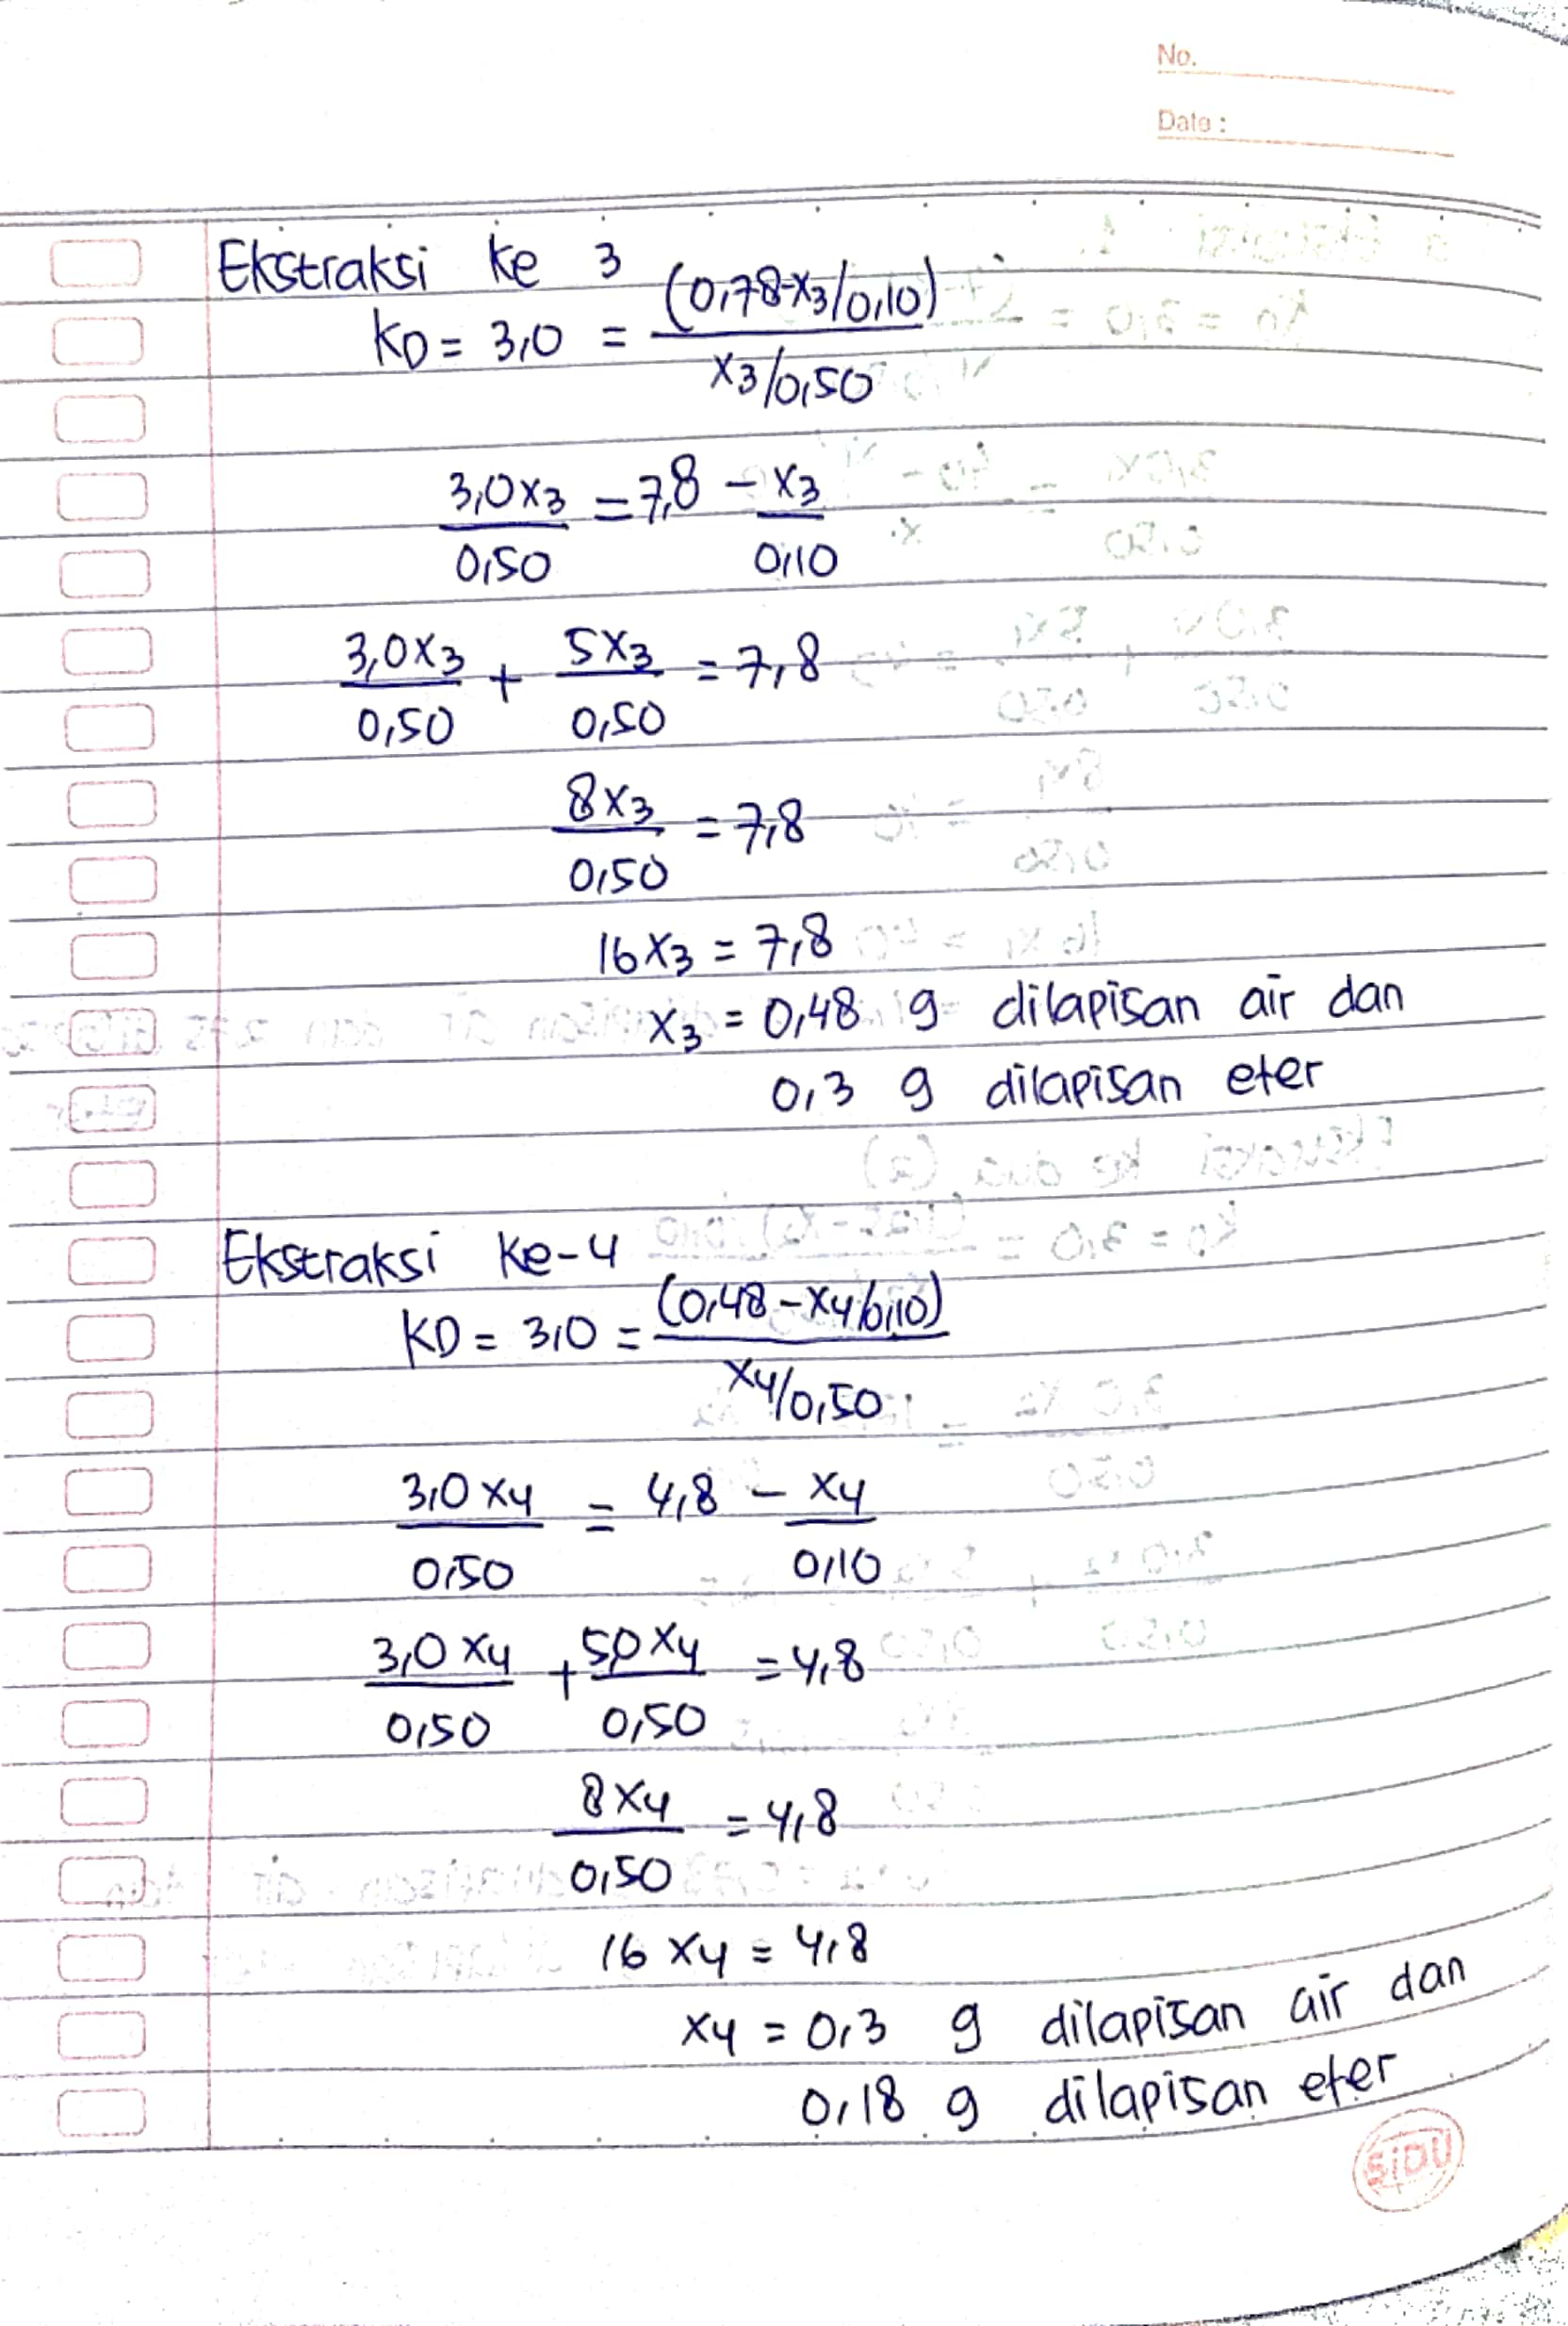 No.
Date :
Ekstraksi ke 3
KD = 3,0 = (0,78-x3/0,10)
x3/0,50
3,0x3 = 7,8 - x3
0,50 0,10
3,0x3 + 5x3 = 7,8
0,50 0,50
8x3 = 7,8
0,50
16x3 = 7,8
x3 = 0,48 g dilapisan air dan
0,3 g dilapisan eter
Ekstraksi Ke-4
KD = 3,0 = (0,48-x4/0,10)
x4/0,50
3,0 x4 = 4,8 - x4
0,50 0,10
3,0 x4 + 5,0 x4 = 4,8
0,50 0,50
8x4 = 4,8
0,50
16 x4 = 4,8
x4 = 0,3 g dilapisan air dan
0,18 g dilapisan eter
SiDU